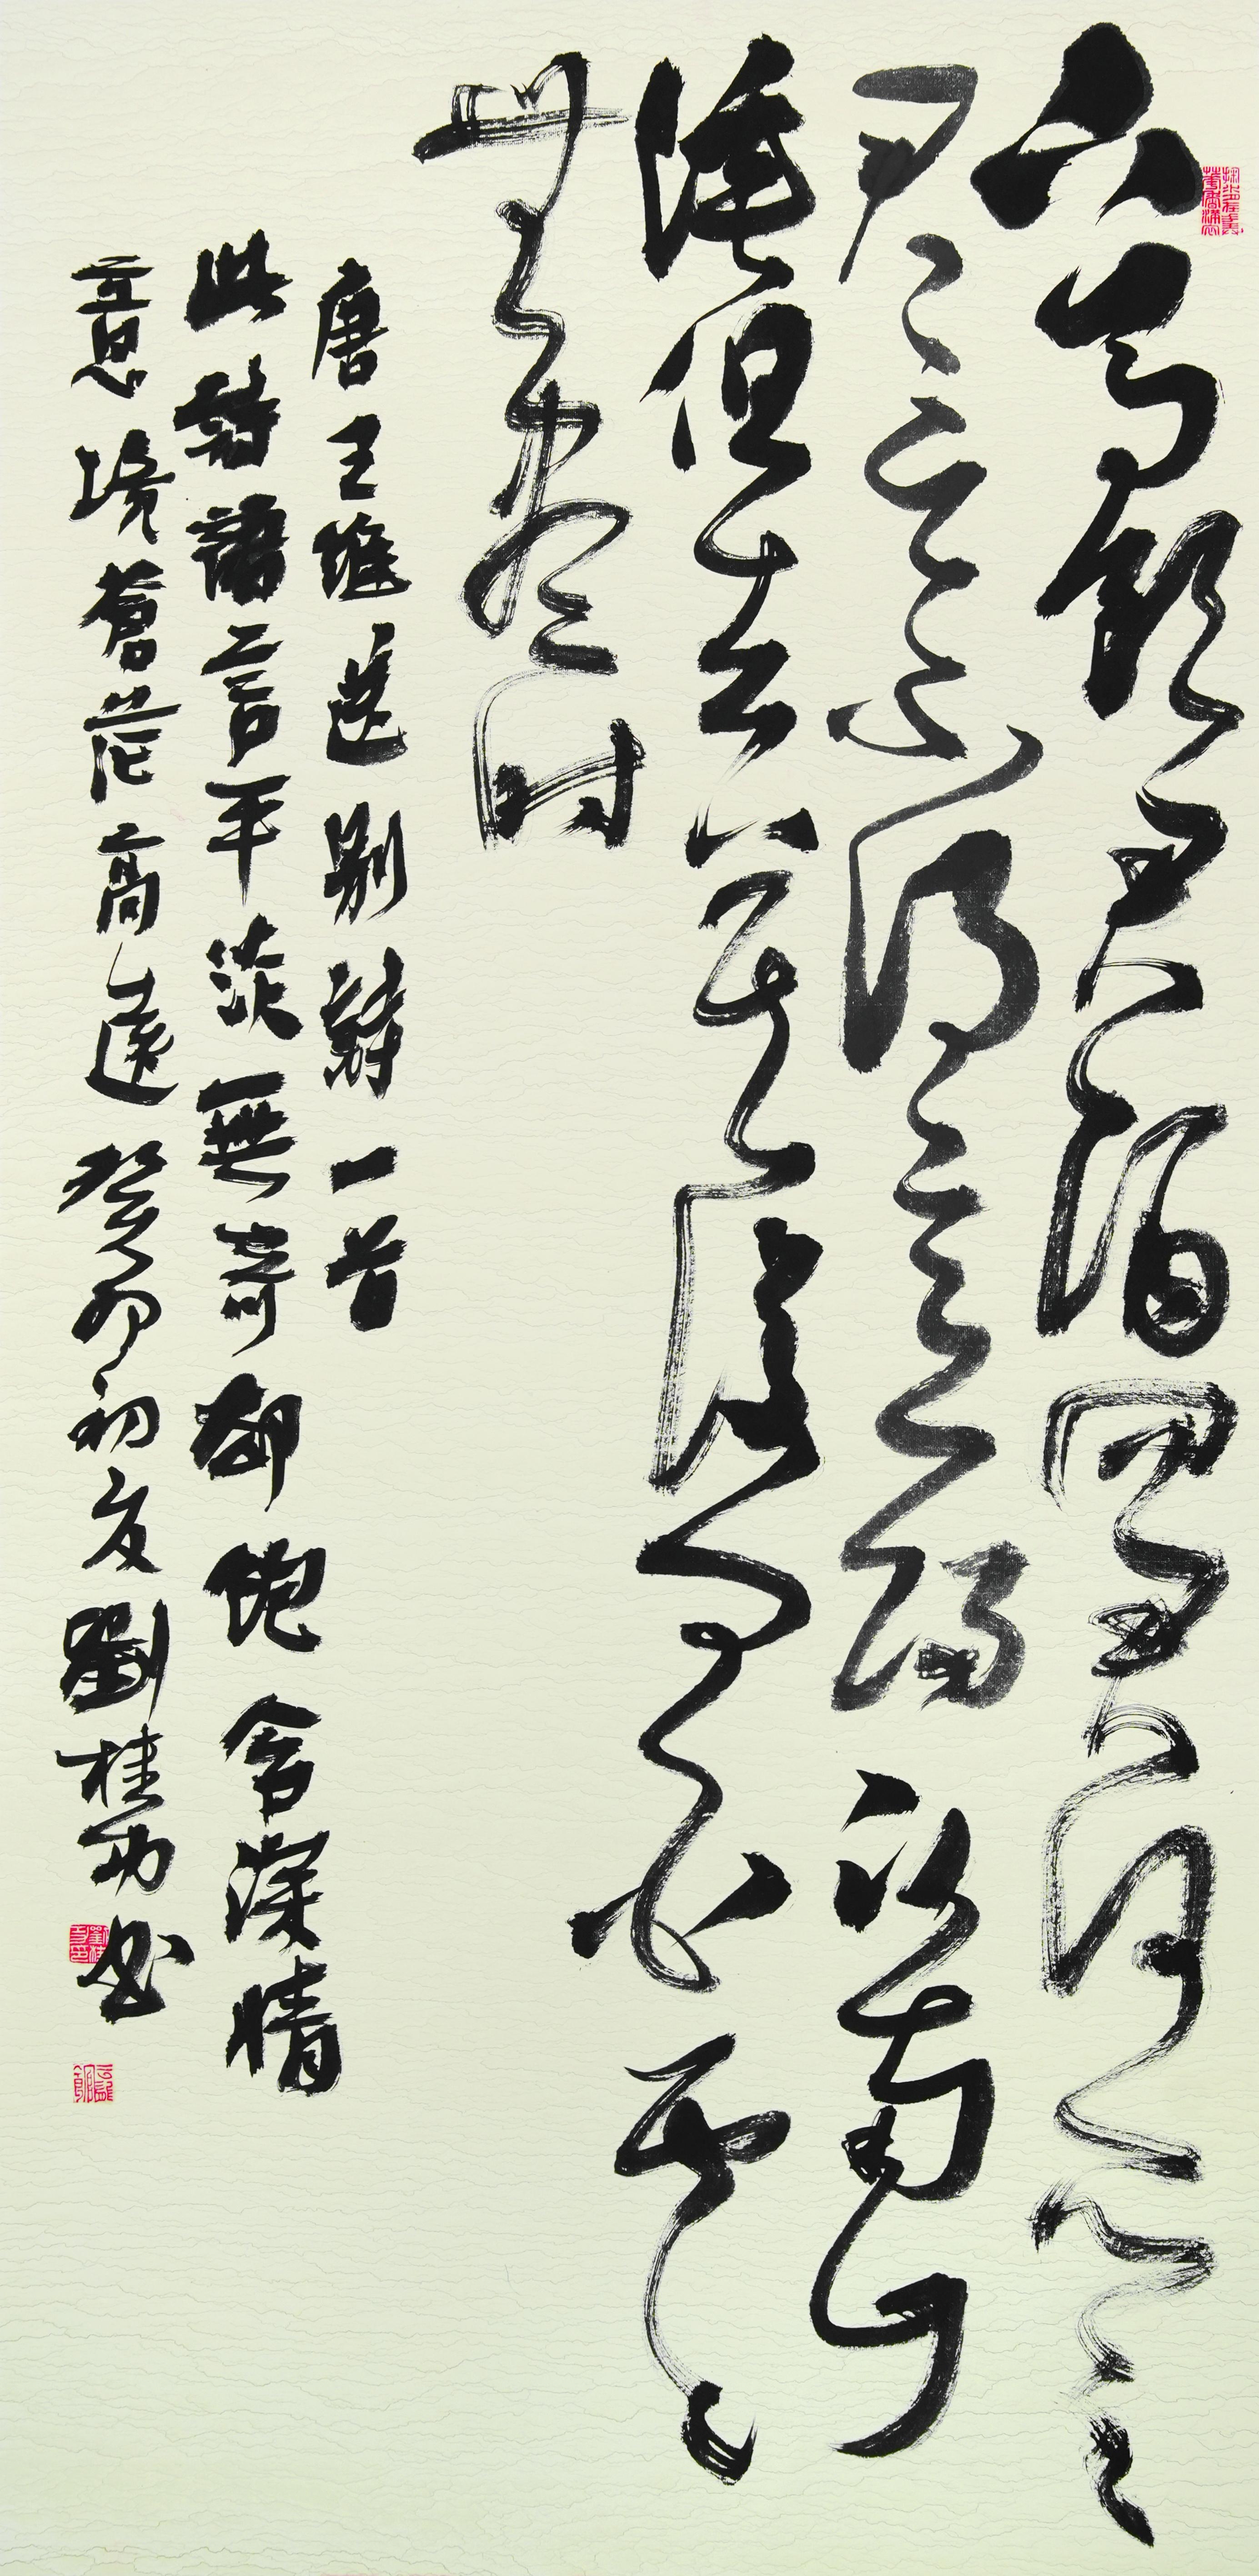 下馬飲君酒問君何所之
君言不得意歸卧南山
陲但去莫復問白雲
無盡時
唐王維送別詩一首
此詩語言平淡無奇卻飽含深情
意境蒼茫高遠癸卯初夏劉桂功書